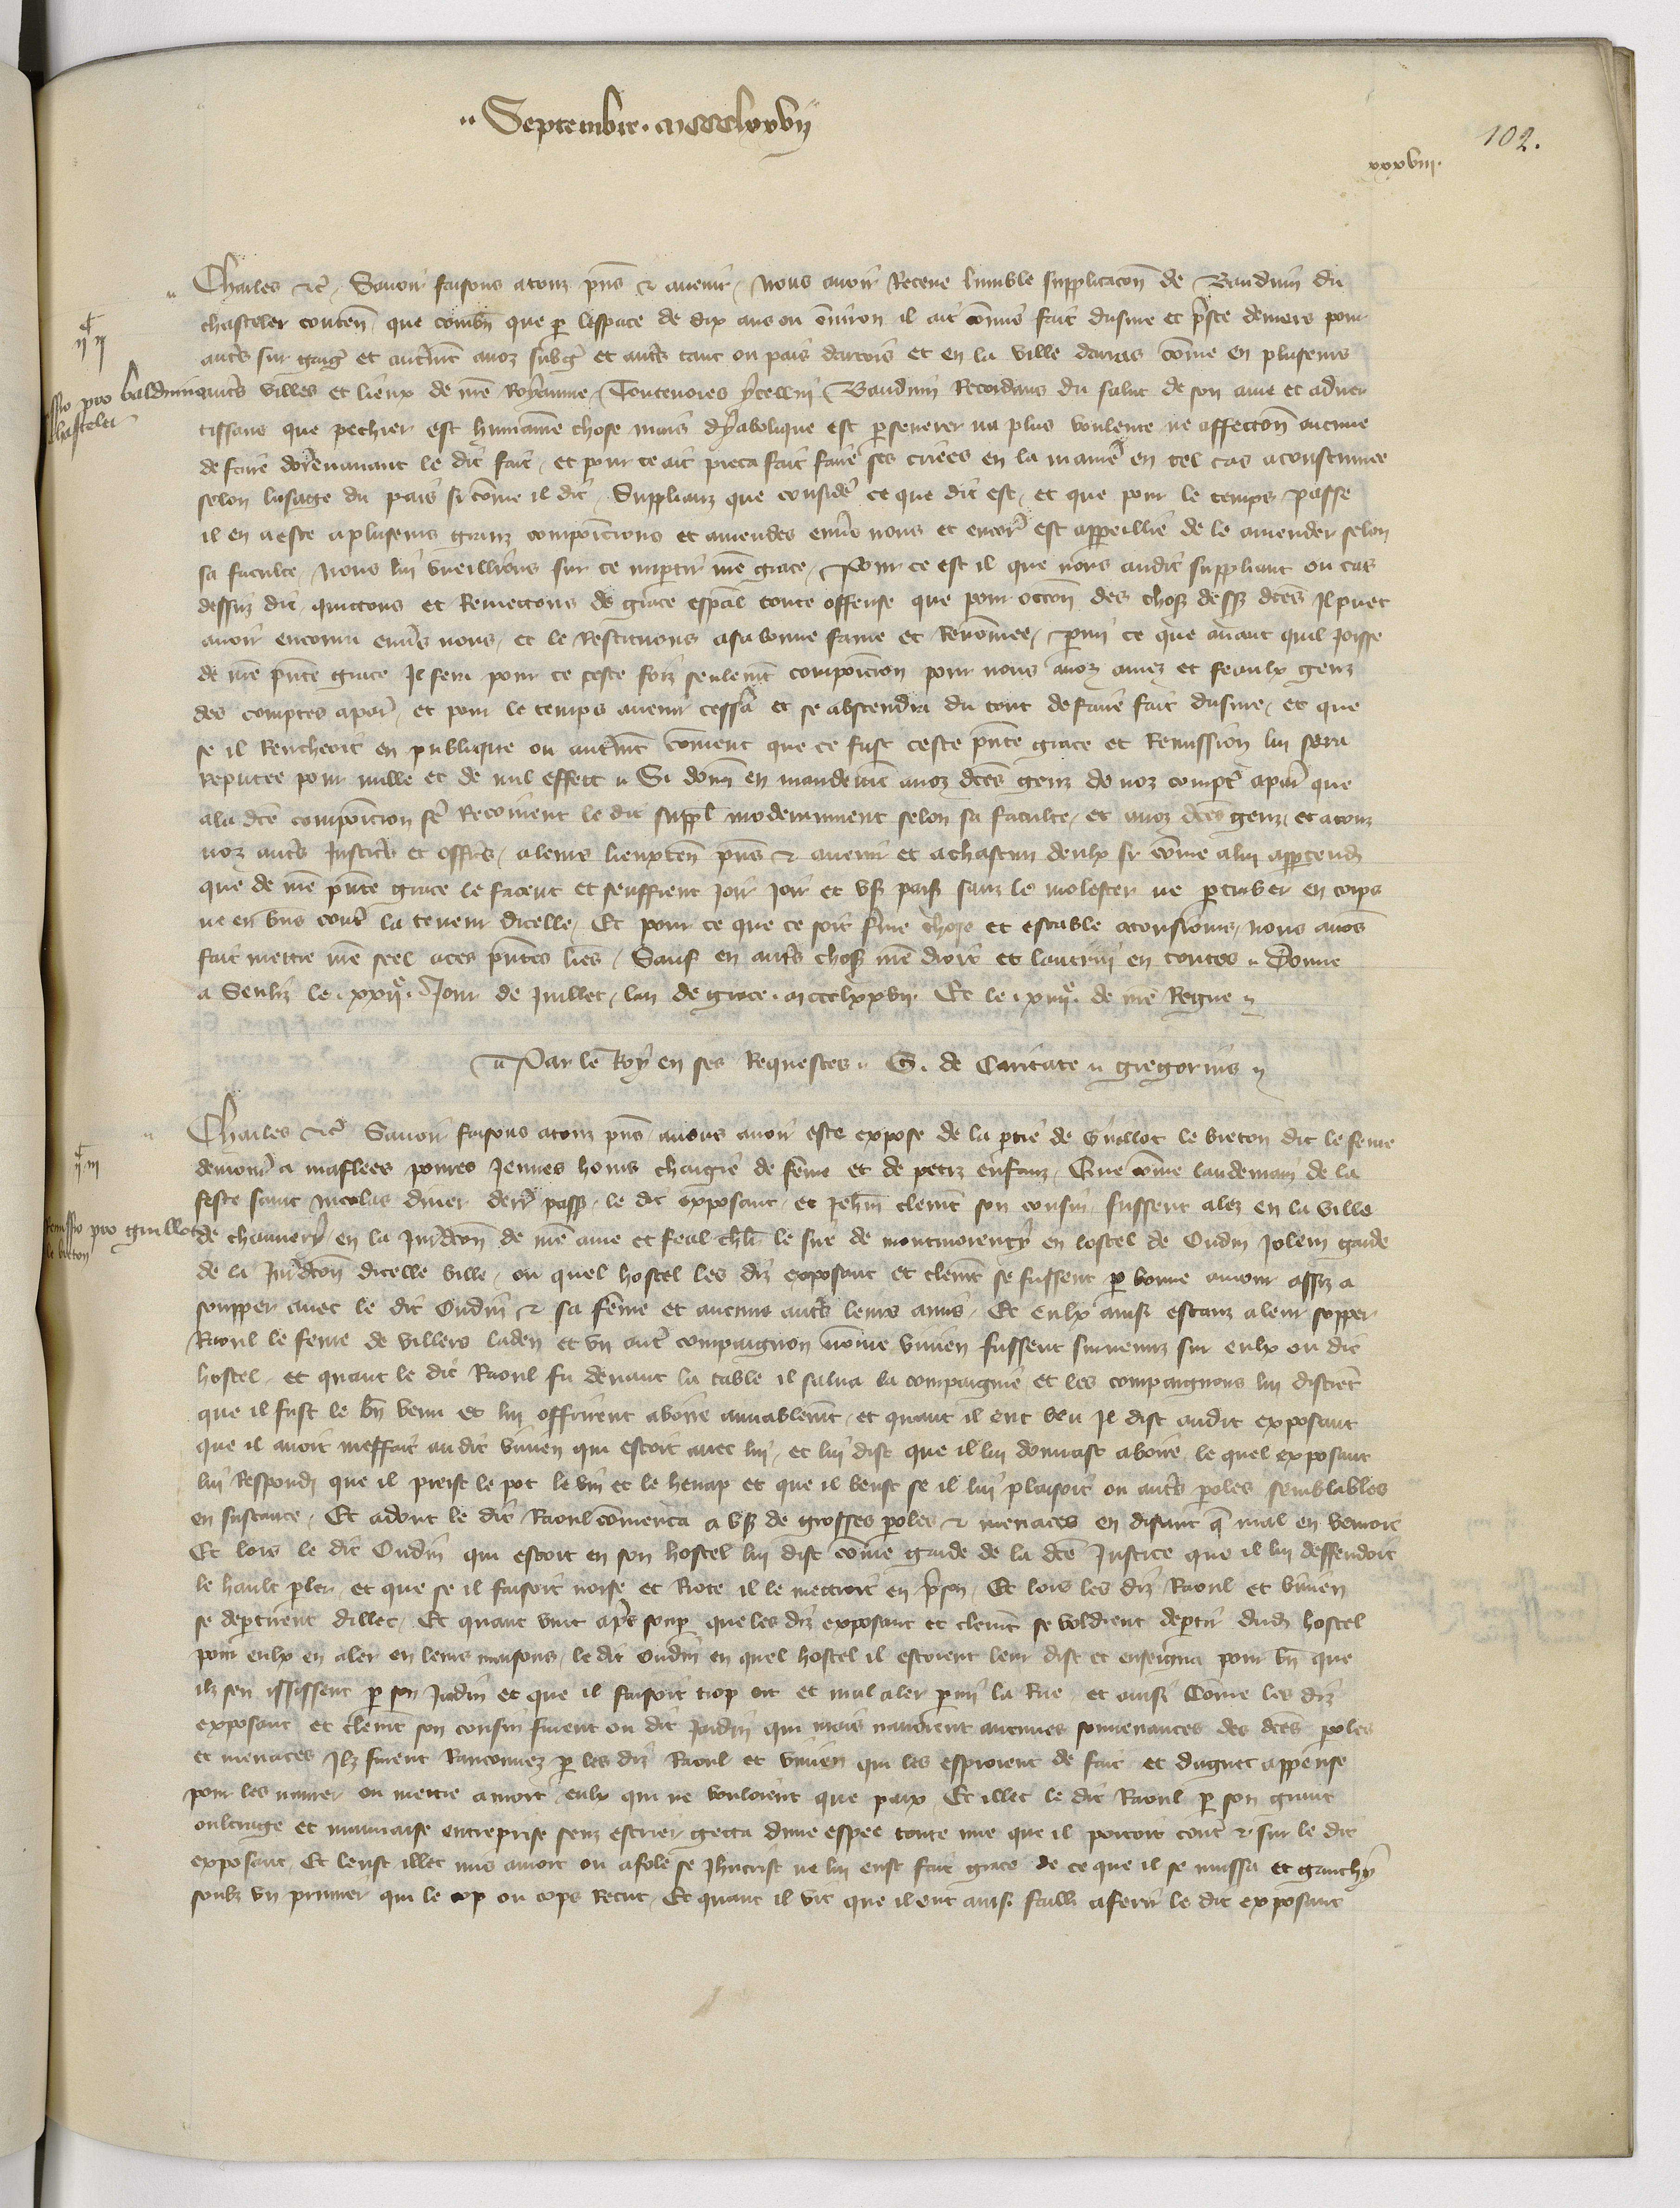 Septembre . mccclxxvij
102.
xxxviij.
Charles etc̃ . Savoir faisons a touz p̃ns & avenir . Nous avoir receue lumble supplicacõn de Bauduin du
chasteler conten̄ . que combñ que ꝑ lespace de dix ans ou environ il ait cõmis fait dusure et p̃ste deniers pour
autrẽs sur gaigẽ et autrem̃t a noz subgẽ et autrẽs tant ou pais dartois et en la ville darras cõme en plusieurs
autrẽs villes et lieux de nr̃e Royaume . Toutevoies ycellui Bauduin recordans du salut de son ame et adver
tissans que pechier est humainne chose mais dyabolique est ꝑseverer na plus voulente ne affectõn aucune
de faire dorẽnavant le dit fait . et pour ce ait pieca fait faire ses criees en la maniẽ en tel cas acoustumee
selon lusage du pais si cõme il dit . Suppliant que considerẽ ce que dit est . et que pour le temps passe
il en a este a plusieurs granz composicions et amendes envẽs nous et encorẽ est appareillie de le amender selon
sa faculte . Nous lui vueillions sur ce impartir nr̃e grace . Pour ce est il que nous audit suppliant ou cas
dessus dit quittons et remettons de grace esp̃cal toute offense que pour occõn des chosẽ dessẽ dc̃es Il puet
avoir encouru envẽs nous . et le restituons a sa bonne fame et renõmee . parmi ce que avant quil joisse
de nr̃e p̃nte grace Il fera pour ce ceste foiz seulem̃t composicion pour nous a noz amez et feaulx genz
des comptes a parẽ . et pour le temps avenir cessera et se abstendra du tout de faire fait dusure . et que
se il rencheoit en publique ou autrem̃t cõment que ce fust ceste p̃nte grace et remission lui sera
reputee pour nulle et de nul effect Si donn̄ en mandem̃t a noz dc̃es genz de noz comptẽ a parẽ que
a la dc̃e composicion fẽ recoivent le dit supp̃l moderement selon sa faculte . et a noz dc̃es genz . et a touz
noz autrẽs Justicẽs et officẽs . a leurs lieuxten̄ p̃ns & avenir et a chascun deulx si cõme a lui appartendrẽ
que de nr̃e p̃nte grace le facent et seuffrent joir joir et usẽ paisẽ sanz le molester ne ꝑturber en corps
ne en biens contrẽ la teneur dicelle . Et pour ce que ce soit ferme chose et estable a tousiours . nous avons
fait mettre nr̃e seel a ces p̃ntes lr̃es . Sauf en autrẽs chosẽ nr̃e droit et lautrui en toutes . Donne
a Senliz le . xxijᵉ . Jour de Juillet . lan de grace . mccclxxvij . Et le . xiiijᵉ . de nr̃e Regne
Par le Roy en ses requestes . G. de Caritate . gregorius
Charles etc̃ Savoir faisons a touz p̃ns . a nous avoir este expose de la ꝑtie de Guillot le breton dit le fevre
demourẽ a maflees povres Jeunes homs chargie de fẽme et de petiz enfanz . Que cõme lendemain de la
feste saint Nicolas diver derrẽ passẽ . le dit exposant . et Jehan clem̃t son cousin . fussent alez en la ville
de chauvery en la Jurid̃con̄ de nr̃e ame et feal chlr̃ le sire de montmorency en lostel de Oudin Jolein garde
de la Jurid̃con̄ dicelle ville . ou quel hostel les diz exposant et clem̃t se fussent ꝑ bonne amour assiz a
soupper avec le dit Oudin & sa fẽme et aucuns autrẽs leurs amis . Et eulx ainsi estanz a leur sopper
Raoul le fevre de villers laden et un autrẽ compaignon nõme vivien fussent survenuz sur eulx ou dit
hostel . et quant le dit Raoul fu devant la table il salua la compaignie et les compaignons lui distrent
que il fust le bñ venu et lui offrirent a boire amiablem̃t . et quant il ent beu Il dist audit exposant
que il avoit meffait audit vivien qui estoit avec lui . et lui dist que il lui donnast a boire . le quel exposant
lui respondi que il preist le pot le vin et le henap et que il beust se il lui plaisoit ou autrẽs paroles semblables
en sustance . Et adont le dit Raoul cõmenca a usẽ de grosses paroles & menaces en disant q̃ mal en venroit
Et lors le dit Oudin qui estoit en son hostel lui dist cõme garde de la dc̃e Justice que il lui deffendoit
le hault ꝑler . et que se il faisoit noise et Riote il le mettroit en p̃son . Et lors les diz Raoul et vivien
se departirent dillec . Et quant vint ap̃s soup̃ que les diz exposant et clem̃t se voldrent departir dudẽ hostel
pour eulx en aler en leurs maisons . le dit Oudin en quel hostel il estoient leur dist et enseigna pour bñ que
ilz sen ississent ꝑ son Jardin et que il faisoit trop ort et mal aler ꝑmi la rue . et ainsi Cõme les diz
exposant et clem̃t son cousin furent ou dit Jardin qui mais navoient aucunes souvenances des dc̃es paroles
et menaces Ilz furent rancontrez ꝑ les diz Raoul et vivien qui les espioient de fait et daguet appense
pour les navrer ou mettre a mort . eulx qui ne vouloient que paix . Et illec le dit Raoul ꝑ son grant
oultrage et mauvaise entreprise senz escrier getta dune espee toute nue que il portoit contrẽ & sur le dit
exposant . Et leust illec mis a mort ou afole se Jhũcrist ne lui eust fait grace de ce que il se mussa et ganchy
soubz un prunier qui le cop ou cops recut . Et quant il vit que il ent ainsi failli a ferir le dit exposant
pro balduino
chasteler
Remissio pro guilloto
le breton